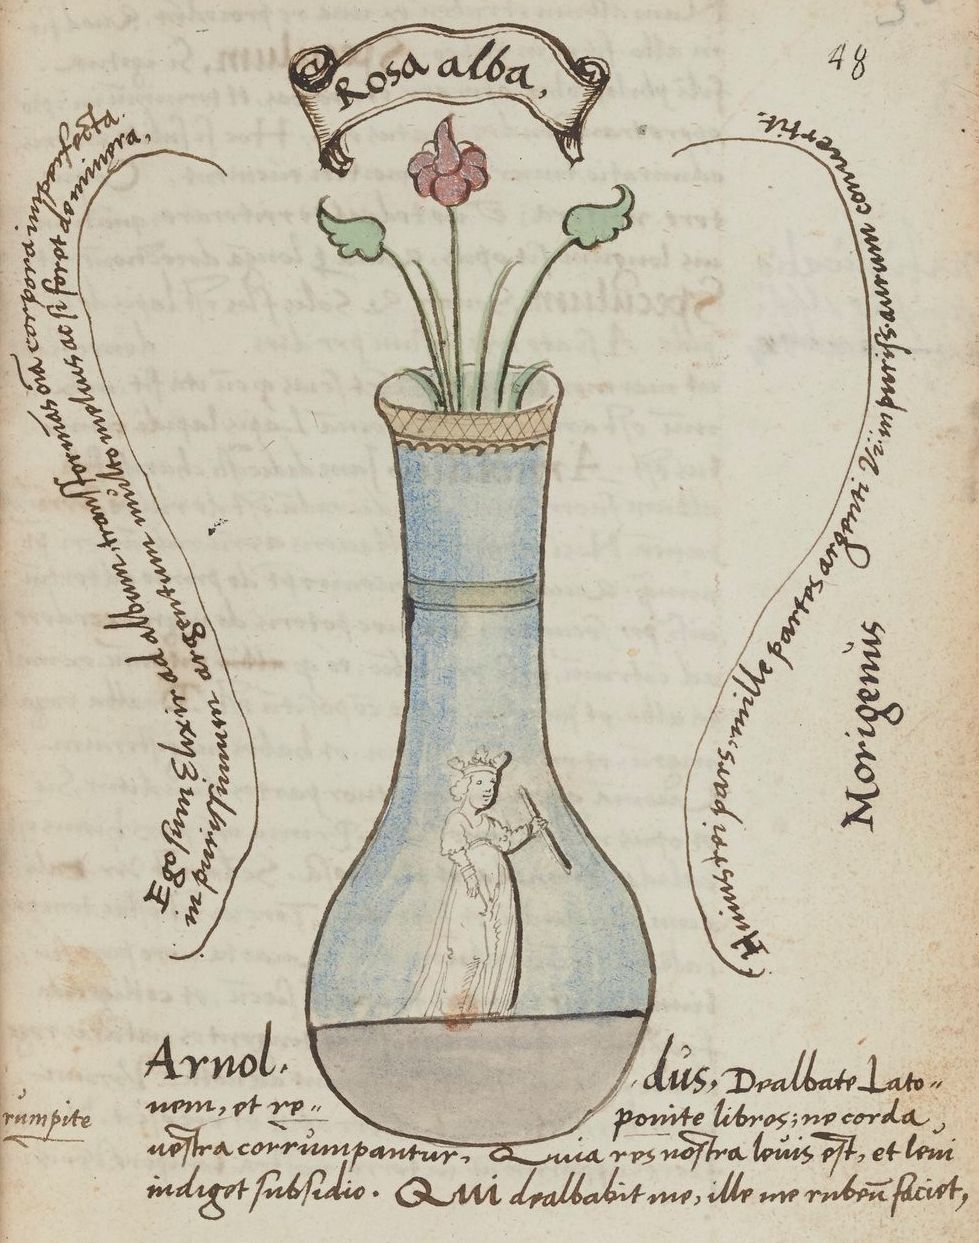 48
Rosa alba,
Ego sum Elixir ad album, transformãs oĩa corpora imperfecta
in purissimum argentum multo melius ac si foret de minera,
Huius nostri pars: mille partes argenti Vivi in purissimum convertit.
Morigenus
Arnol.
dus, Dealbate Lato=
nem, et re=
ponite libros; ne corda,
rumpite
vestra corrumpantur, Quia res nostra levis est, et levi
indiget subsidio. Qui dealbabit me, ille me rubeũ faciet,